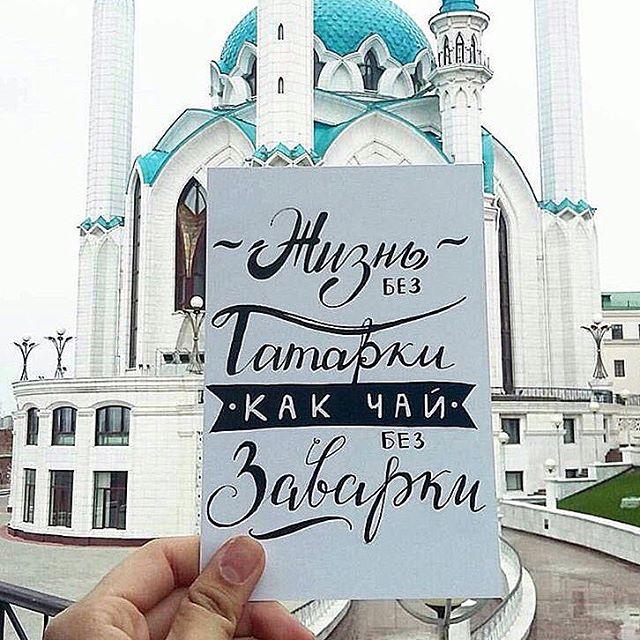 ~Жизнь~
БЕЗ
Татарки
·КАК ЧАЙ·
БЕЗ
Заварки